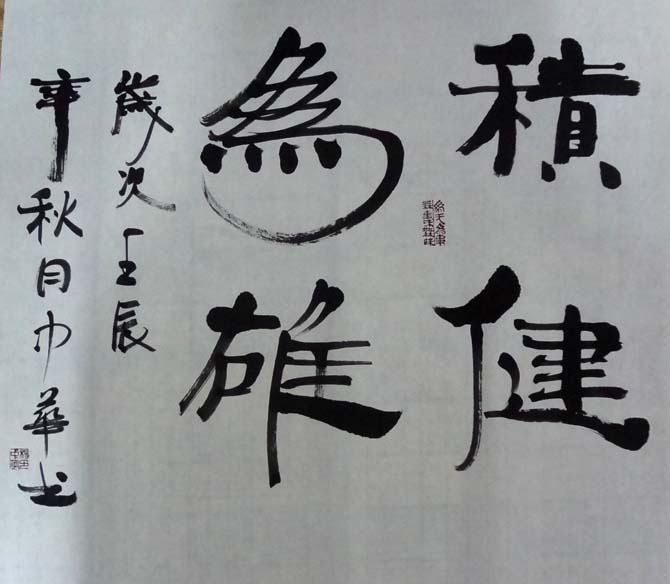 積健
為雄
歲次壬辰
年秋月巾華书